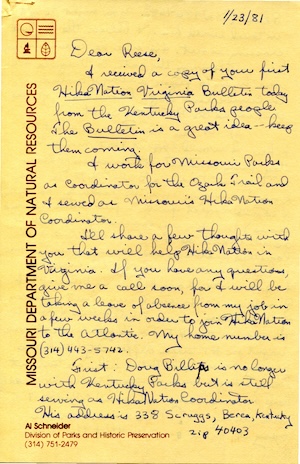 1/23/81
Dear Reese,
I received a copy of your first
HikaNation Virginia Bulletin today
from the Kentucky Parks people
The Bulletin is a great idea -- keep
them coming.
I work for Missouri Parks
as coordinator for the Ozark Trail and
I served as Missouri's HikaNation
Coordinator.
I'll share a few thoughts with
you that will help HikaNation in
Virginia. If you have any questions,
give me a call soon, for I will be
taking a leave of absence from my job in
a few weeks in order to join HikaNation
to the Atlantic. My home number is
(314) 443-5742.
First: Doug Phillips is no longer
with Kentucky Parks but is still
serving as HikaNation Coordinator
His address is 338 Scruggs, Berea, Kentucky
zip 40403
MISSOURI DEPARTMENT OF NATURAL RESOURCES
Al Schneider
Division of Parks and Historic Preservation
(314) 751-2479